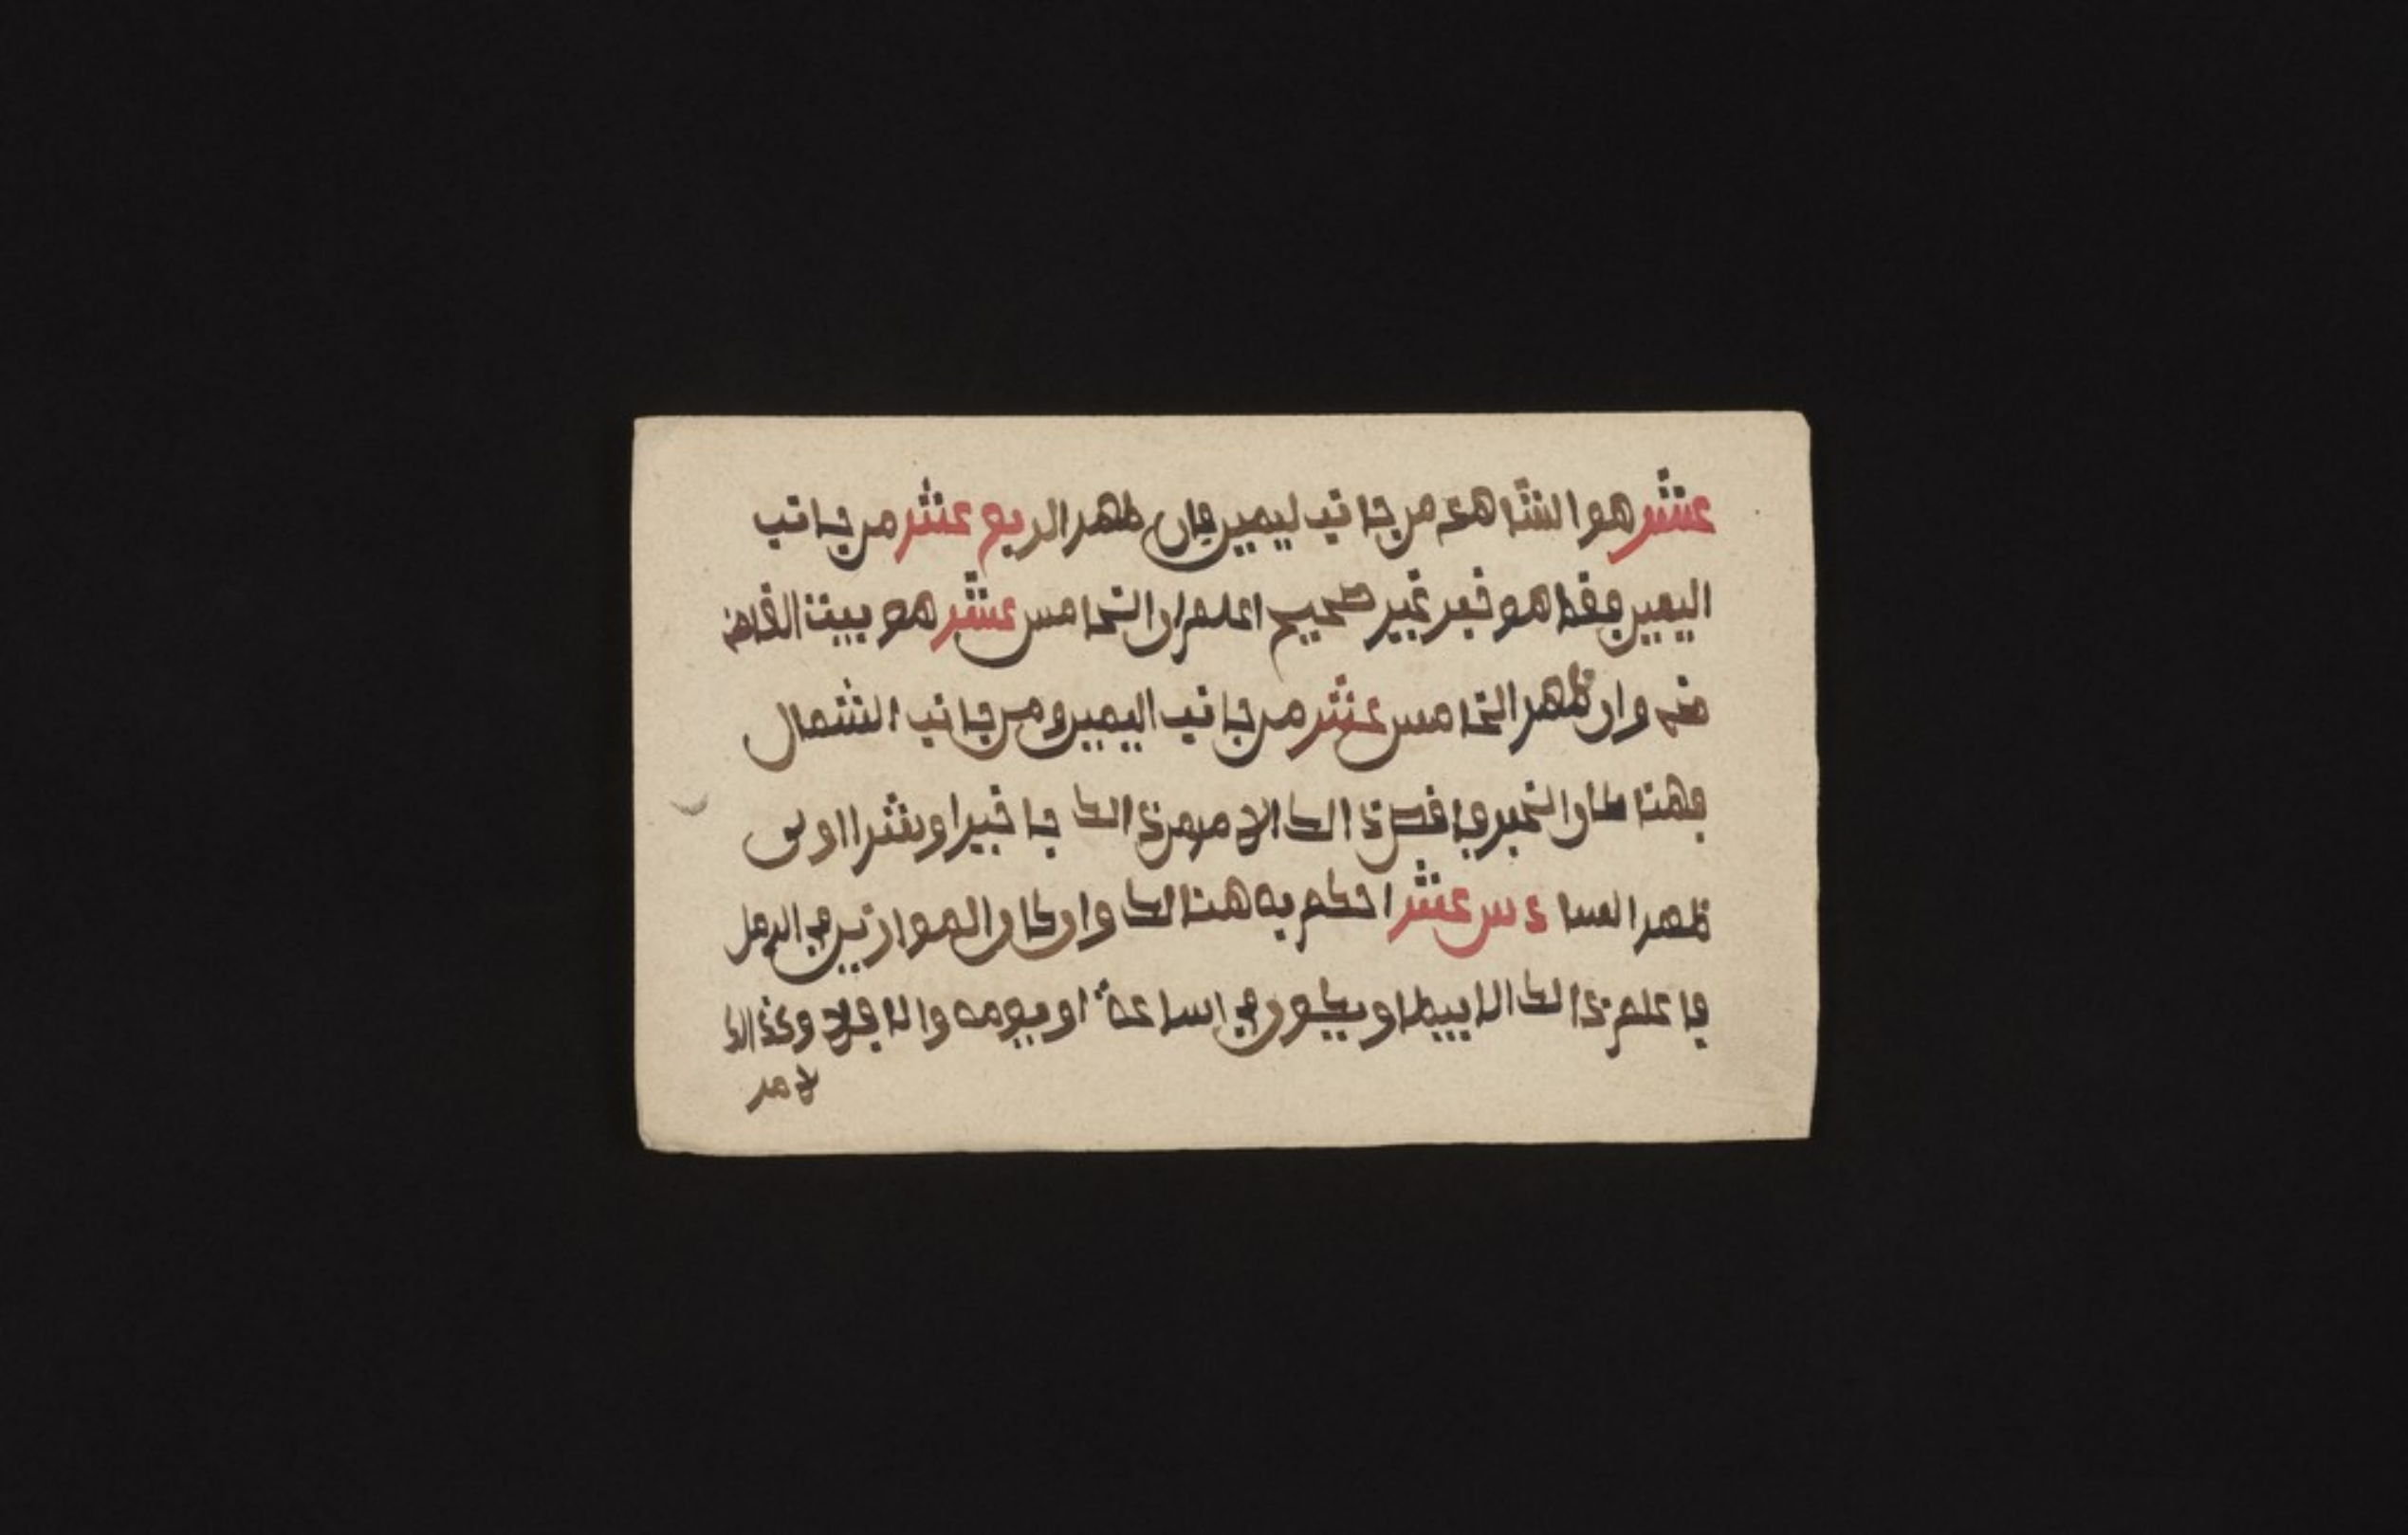 عشر هو الشاهد من جانب ليمين فان ظهر الربع عشر من جانب
اليمين فقط هو خبر غير صحيح اعلم ان الخامس عشر هو بيت القاض
ضي وان ظهر الخامس عشر من جانب اليمين ومن جانب الشمال
فهنا طا والخير فاقص ذالك الامر من ذالك جا خيرا وشرا اولى
ظهر السادس عشر احكم به هنالك وان كان الموازين في الرمل
فاعلم ذالك الابيط او يكون في اساعة او يومه والافلا وكذالك
لامر